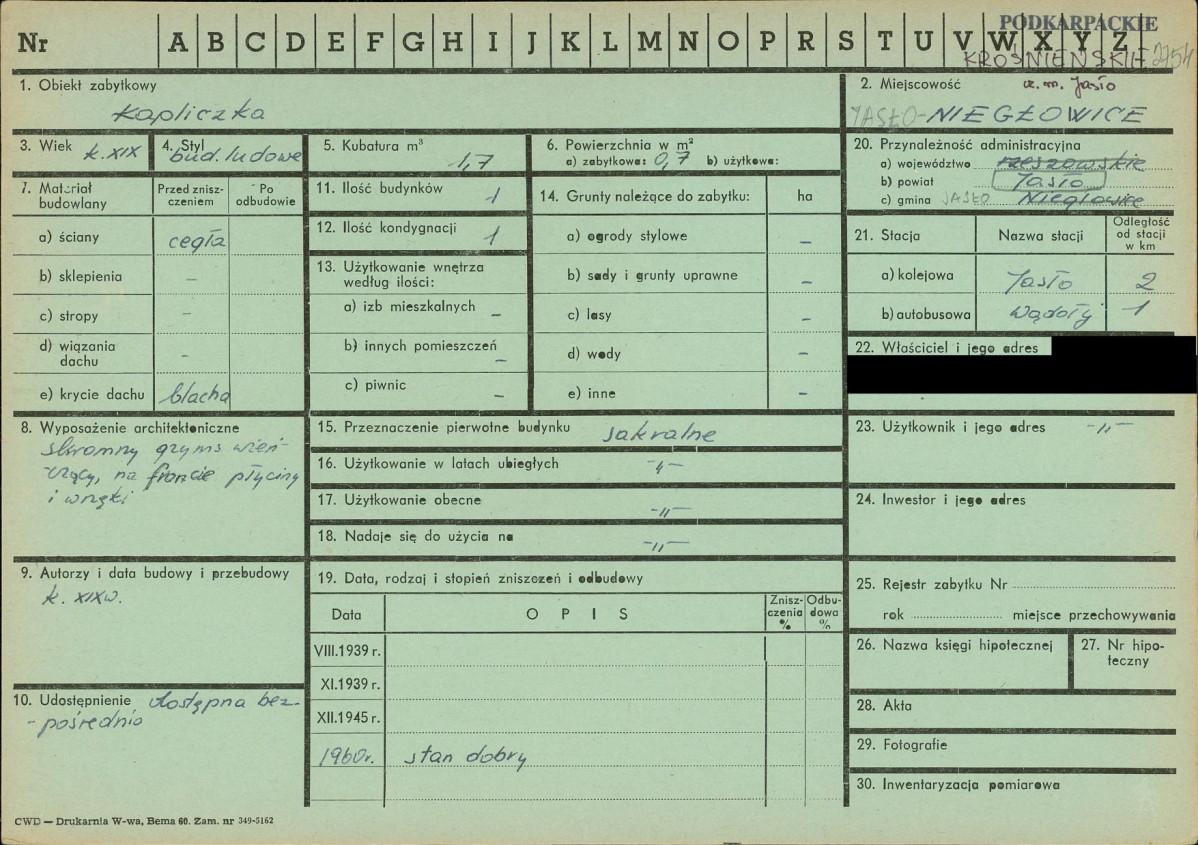 Nr A B C D E F G H I J K L M N O P R S T U V W X Y Z
PODKARPACKIE
KROŚNIEŃSKIE 2754
1. Obiekt zabytkowy
Kapliczka
2. Miejscowość
JASŁO-NIEGŁOWICE
3. Wiek k. XIX
4. Styl
bud. ludowe
5. Kubatura m³
1,7
6. Powierzchnia w m²
a) zabytkowa: 0,7 b) użytkowa:
20. Przynależność administracyjna
a) województwo rzeszowskie
b) powiat Jasło
c) gmina JASŁO Niegłowice
7. Materiał budowlany
Przed zniszczeniem
Po odbudowie
a) ściany cegła
b) sklepienia –
c) stropy –
d) wiązania dachu –
e) krycie dachu blacha
11. Ilość budynków 1
12. Ilość kondygnacji 1
13. Użytkowanie wnętrza
według ilości:
a) izb mieszkalnych –
b) innych pomieszczeń –
c) piwnic –
14. Grunty należące do zabytku: ha
a) ogrody stylowe –
b) sady i grunty uprawne –
c) lasy –
d) wody –
e) inne –
21. Stacja Nazwa stacji Odległość od stacji w km
a) kolejowa Jasło 2
b) autobusowa Wądoły 1
22. Właściciel i jego adres
8. Wyposażenie architektoniczne
skromny gzyms wień-
czący, na froncie płyciny
i wnęki
15. Przeznaczenie pierwotne budynku sakralne
16. Użytkowanie w latach ubiegłych -"-
17. Użytkowanie obecne -"-
18. Nadaje się do użycia na -"-
23. Użytkownik i jego adres -"-
24. Inwestor i jego adres
9. Autorzy i data budowy i przebudowy
k. XIX w.
10. Udostępnienie dostępna bez-
-pośrednio
19. Data, rodzaj i stopień zniszczeń i odbudowy
Data OPIS Zniszczenia % Odbudowa %
VIII.1939 r.
XI.1939 r.
XII.1945 r.
1960r. stan dobry
25. Rejestr zabytku Nr
rok miejsce przechowywania
26. Nazwa księgi hipotecznej
27. Nr hipoteczny
28. Akta
29. Fotografie
30. Inwentaryzacja pomiarowa
CWD — Drukarnia W-wa, Bema 60. Zam. nr 349-5162